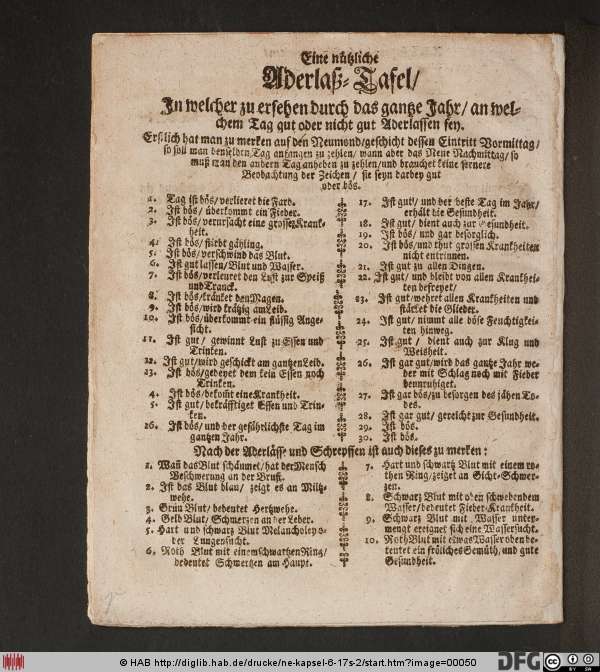 Eine nützliche
Aderlaß-Tafel/
In welcher zu ersehen durch das gantze Jahr/ an wel-
chem Tag gut oder nicht gut Aderlassen sey.
Erstlich hat man zu merken auf den Neumond/geschicht dessen Eintritt Vormittag/
so soll man denselben Tag anfangen zu zehlen/ wann aber das Neue Nachmittag/ so
muß man den andern Tag anheben zu zehlen/und brauchet keine fernere
Beobachtung der Zeichen/ sie seyn darbey gut
oder bös.
1. Tag ist bös/verlieret die Farb.
2. Ist bös/ überkommt ein Fieber.
3. Ist bös/ verursacht eine grosse Krank-
heit.
4. Ist bös/ stirbt gähling.
5. Ist bös/ verschwind das Blut.
6. Ist gut lassen/Blut und Wasser.
7. Ist bös/verleuret den Lust zur Speiß
und Tranck.
8. Ist bös/kränket den Magen.
9. Ist bös/wird krätzig am Leib.
10. Ist bös/überkommt ein flüssig Ange-
sicht.
11. Ist gut/ gewinnt Lust zu Essen und
Trinken.
12. Ist gut/wird geschickt am gantzen Leib.
13. Ist bös/gedeyet dem kein Essen noch
Trinken.
4. Ist bös/bekomt eine Krankheit.
5. Ist gut/bekräfftiget Essen und Trin-
ken.
16. Ist bös/ und der gefährlichste Tag im
gantzen Jahr.
17. Ist gut/ und der beste Tag im Jahr/
erhält die Gesundheit.
18. Ist gut/ dient auch zur Gesundheit.
19. Ist bös/ und gar besorglich.
20. Ist bös/und thut grossen Krankheiten
nicht entrinnen.
21. Ist gut zu allen Dingen.
22. Ist gut/ und bleibt von allen Krankhei-
ten befreyet/
23. Ist gut/wehret allen Krankheiten und
stärket die Glieder.
24. Ist gut/ nimmt alle böse Feuchtigkei-
ten hinweg.
25. Ist gut / dient auch zur Klug und
Weisheit.
26. Ist gar gut/wird das gantze Jahr we-
der mit Schlag noch mit Fieber
beunruhiget.
27. Ist gar bös/zu besorgen des jähen To-
des.
28. Ist gar gut/ gereicht zur Gesundheit.
29. Ist bös.
30. Ist bös.
Nach der Aderläss- und Schrepffen ist auch dieses zu merken:
1. Wañ das Blut schäumet/hat der Mensch
Beschwerung an der Brust.
2. Ist das Blut blau/ zeigt es an Miltz-
wehe.
3. Grün Blut/ bedeutet Hertzwehe.
4. Gelb Blut/ Schmertzen an der Leber.
5. Hart und schwarz Blut Melancholey o-
der Lungensucht.
6. Roth Blut mit einem schwartzen Ring/
bedeutet Schmertzen am Haupt.
7. Hart und schwartz Blut mit einem ro-
then Ring/zeiget an Gicht-Schmer-
zen.
8. Schwarz Blut mit oben schwebendem
Wasser/bedeutet Fieber-Krankheit.
9. Schwarz Blut mit Wasser unter-
mengt ereignet sich eine Wassersucht.
10. Roth Blut mit etwas Wasser oben be-
deutet ein fröliches Gemüth/ und gute
Gesundheit.
© HAB http://diglib.hab.de/drucke/ne-kapsel-6-17s-2/start.htm?image=00050
DFG